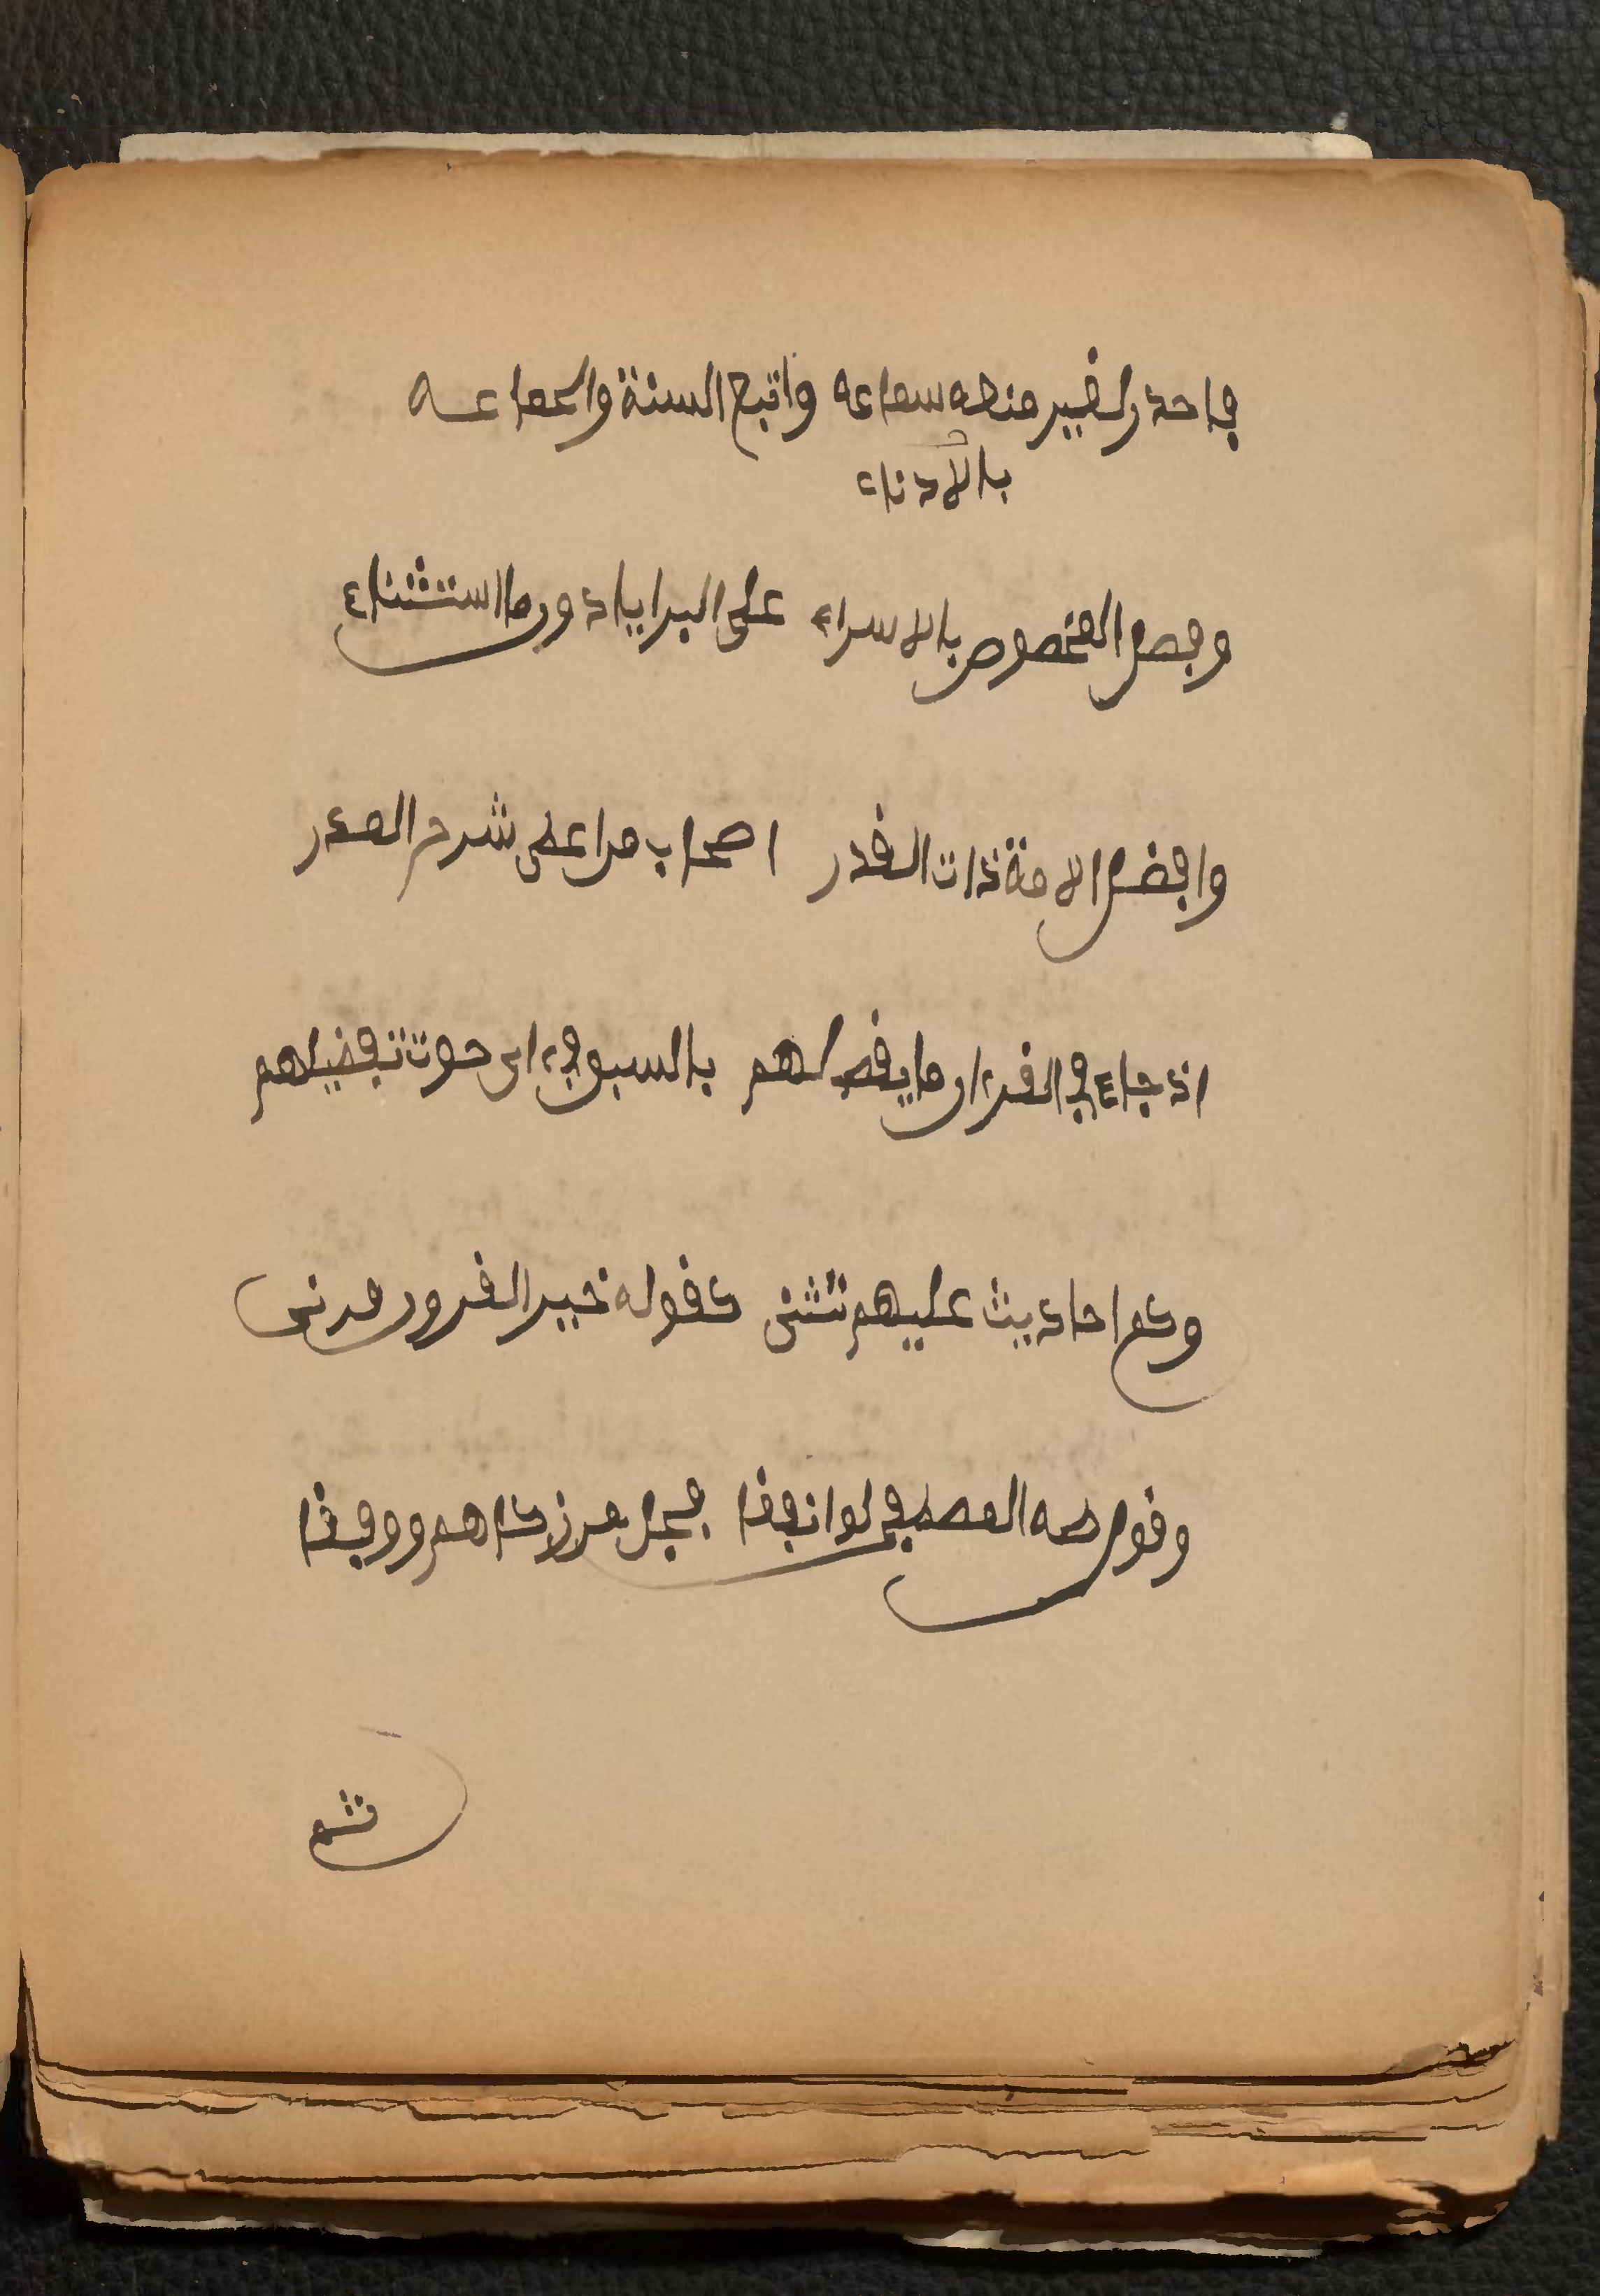 فاحذر لضير منهم سماعه واتبع السنة والجماعه
بالادناء
وفضل المخصوص بالاسراء على البرايا دون ما استثناء
وافضل الامة ذات القدر اصحاب من اعطى شرح الصدر
اذ جاء في القرءان ما يقضى لهم بالسبق في ءاى حوت تفضيلهم
وكم احاديث عليهم تثنى كقوله خير القرون قرنى
وقول طه المصطفى لو انفقا فجل من زكاهم ووفقا
ثم